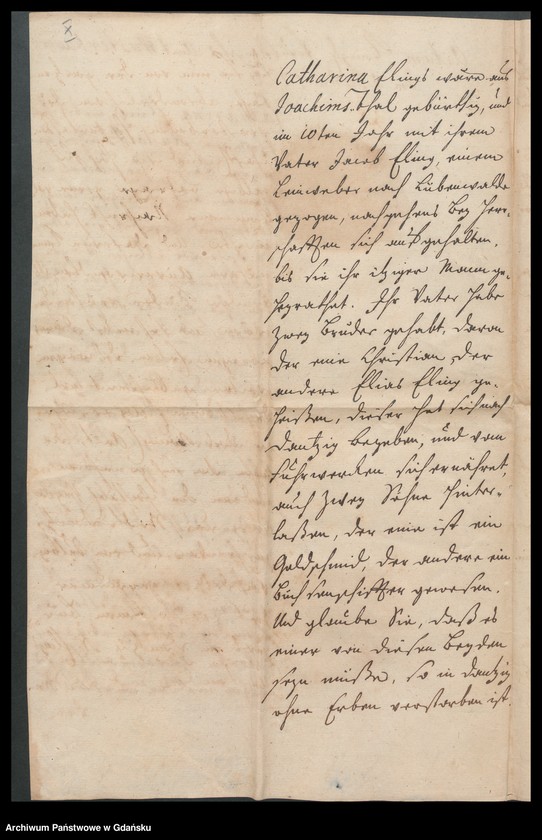 X
Catharina Elings wäre aus
Joachims-Thal gebürthig, und
im 10ten Jahr mit ihrem
Vater Jacob Eling, einem
Leinweber nach Lübenwalde
gezogen, nachgehends bey Herr-
schafften sich auffgehalten,
bis sie ihr itziger Mann ge-
heyrathet. Ihr Vater habe
zwey Brüder gehabt, davon
der eine Christian, der
andere Elias Eling ge-
heißen, dieser hat sich nach
Dantzig begeben, und vom
Fuhrwercken sich ernähret,
auch zwey Söhne hinter-
laßen, der eine ist ein
Goldschmid, der andere ein
Büchsenschiffter gewesen.
Und glaube Sie, daß es
einer von diesen beyden
seyn müße, so in Dantzig
ohne Erben verstorben ist.
Archiwum Państwowe w Gdańsku